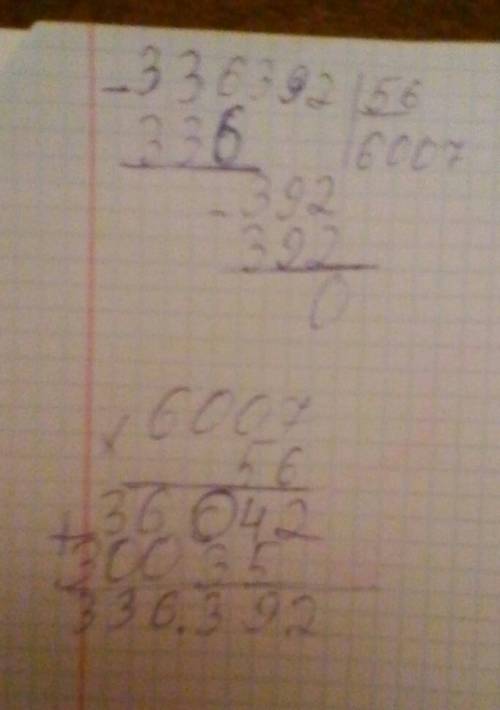 - 336392 | 56
336 | 6007
- 392
392
0
6007
×
56
+ 36042
30035
336.392